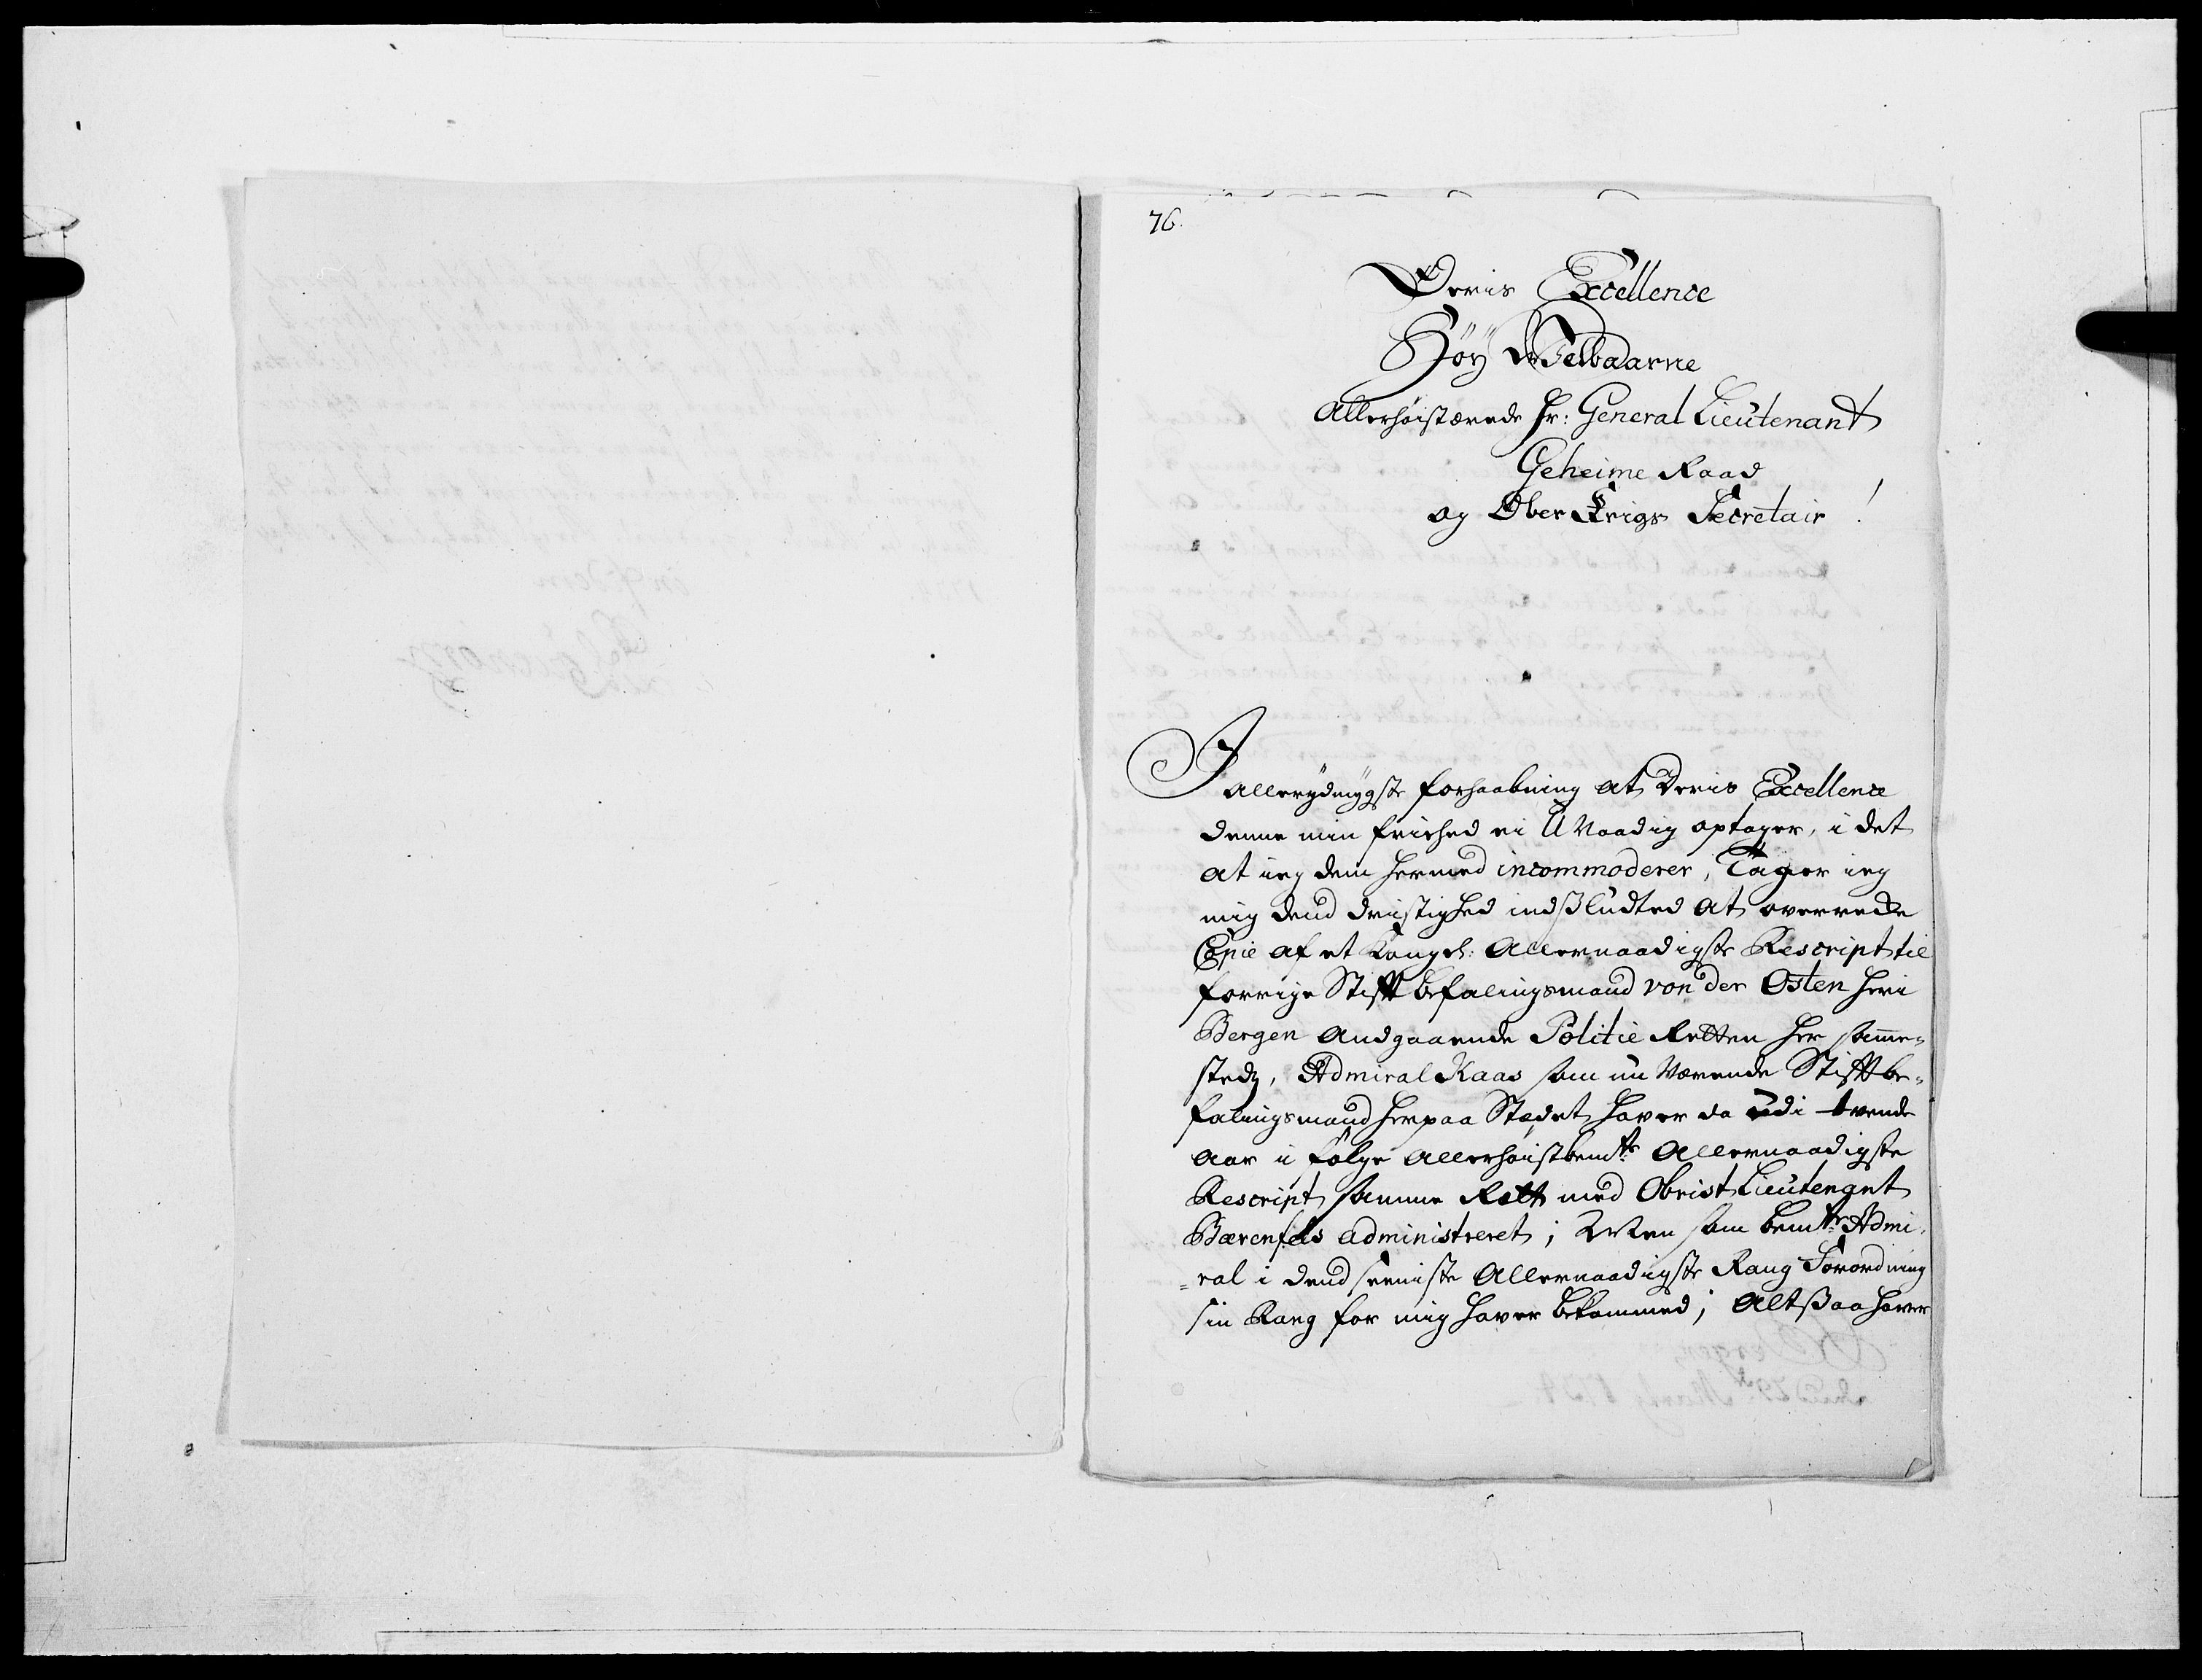 76.
Deris Excellence
Høÿ Welbaarne
Allerhøistærede Hr: General Lieutenant
Geheime Raad
og Ober Krigs Secretair!
I
allerydmygste forhaabning at Deris Excellence
denne min friehed ei Unaadig optager, i det
at ieg dem hermed incommoderer, Tager ieg
mig dend dristighed indslutted at overrecke
Copie af et Kongel: Allernaadigste Rescript til
forrige Stiftbefalingsmand von der Osten her i
Bergen andgaaende Politie Retten her samme-
steds, Admiral Kaas som nu Værende Stiftbe-
falingsmand her paa Stedet haver da udi tvende
aar i følge allerhøistbemte Allernaadigste
Rescript samme Rett med Obrist Lieutenant
Bærenfels administreret; Men som bemte Admi-
ral i dend seeniste Allernaadigste Rang Forordning
sin Rang for mig haver bekommed; Altsaa haver